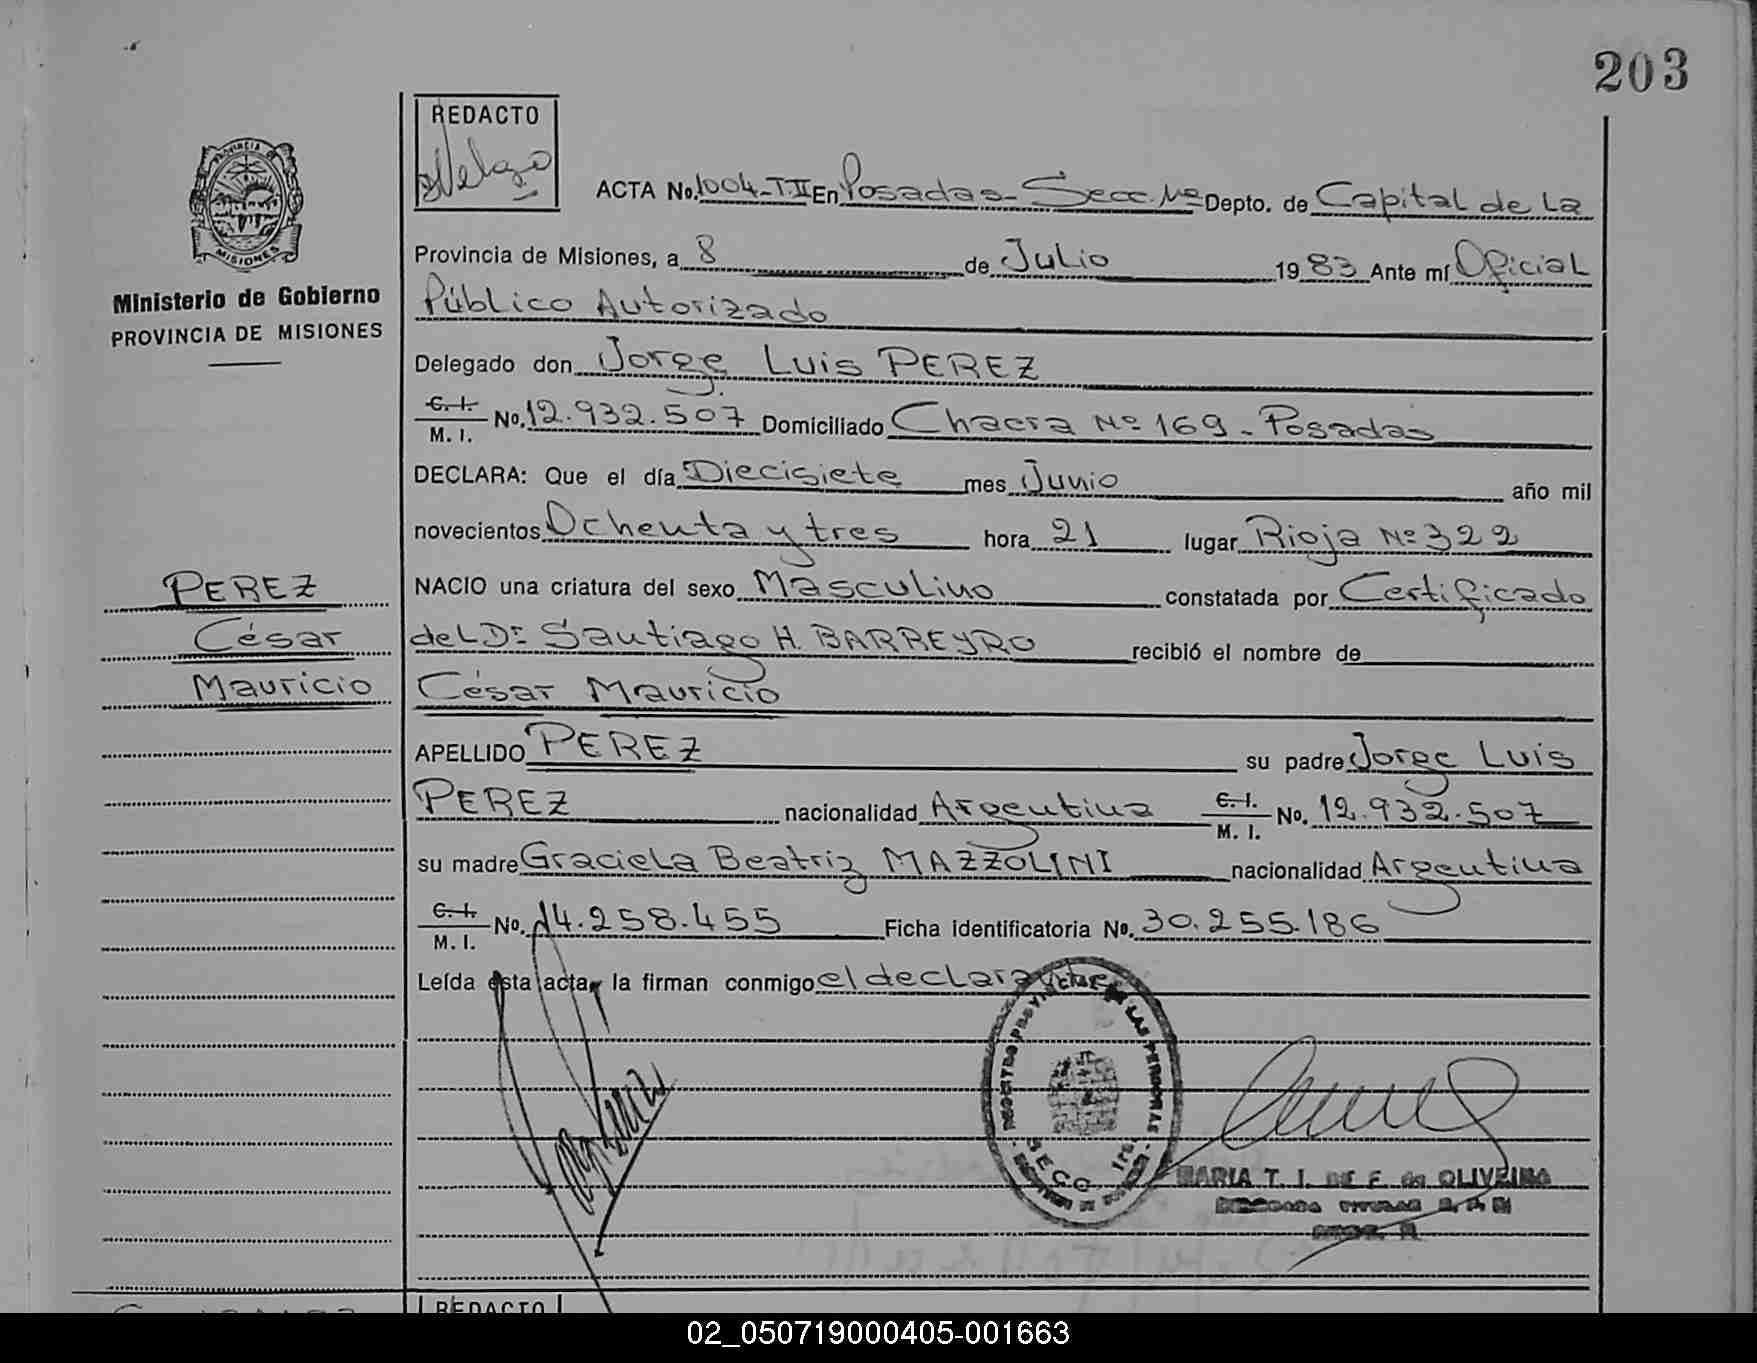 203
REDACTO
ACTA No. 1004-T.II En Posadas - Secc. 1ª Depto. de Capital de la
PROVINCIA DE
MISIONES
Ministerio de Gobierno
PROVINCIA DE MISIONES
Provincia de Misiones, a 8 de Julio 1983 Ante mí Oficial
Público Autorizado
Delegado don Jorge Luis PEREZ
C. I.
M. I. No. 12.932.507 Domiciliado Chacra Nº 169 - Posadas
DECLARA: Que el día Diecisiete mes Junio año mil
novecientos Ochenta y tres hora 21 lugar Rioja Nº 322
NACIO una criatura del sexo Masculino constatada por Certificado
del Dr Santiago H. BARREYRO recibió el nombre de
César Mauricio
PEREZ
César
Mauricio
APELLIDO PEREZ su padre Jorge Luis
PEREZ nacionalidad Argentina C. I. M. I. No. 12.932.507
su madre Graciela Beatriz MAZZOLINI nacionalidad Argentina
C. I.
M. I. No. 14.258.455 Ficha Identificatoria No. 30.255.186
Leída esta acta, la firman conmigo el declarante
REGISTRO PROVINCIAL DE LAS PERSONAS
SECC. 1ra.
MARIA T. I. DE F. de OLIVEIRA
REDACTO
02_050719000405-001663